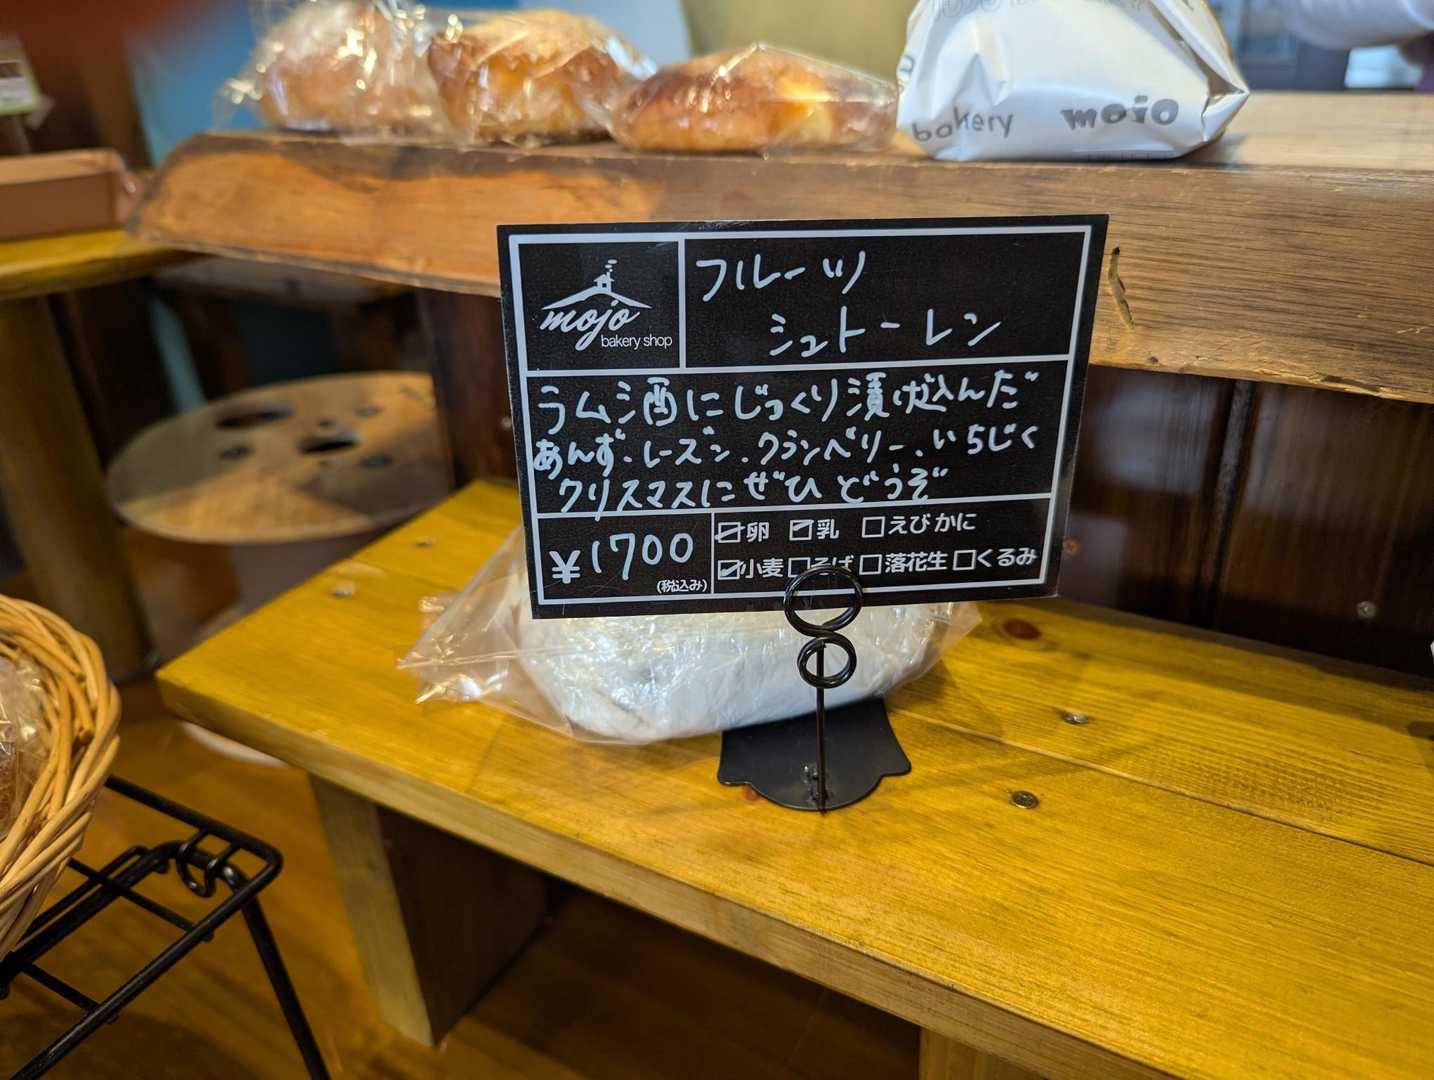 bakery mojo
mojo
bakery shop
フルーツ
シュトーレン
ラム酒にじっくり漬け込んだ
あんず、レーズン、クランベリー、いちじく
クリスマスにぜひどうぞ
¥1700
(税込み)
☑卵 ☑乳 □えびかに
☑小麦 □そば □落花生 □くるみ